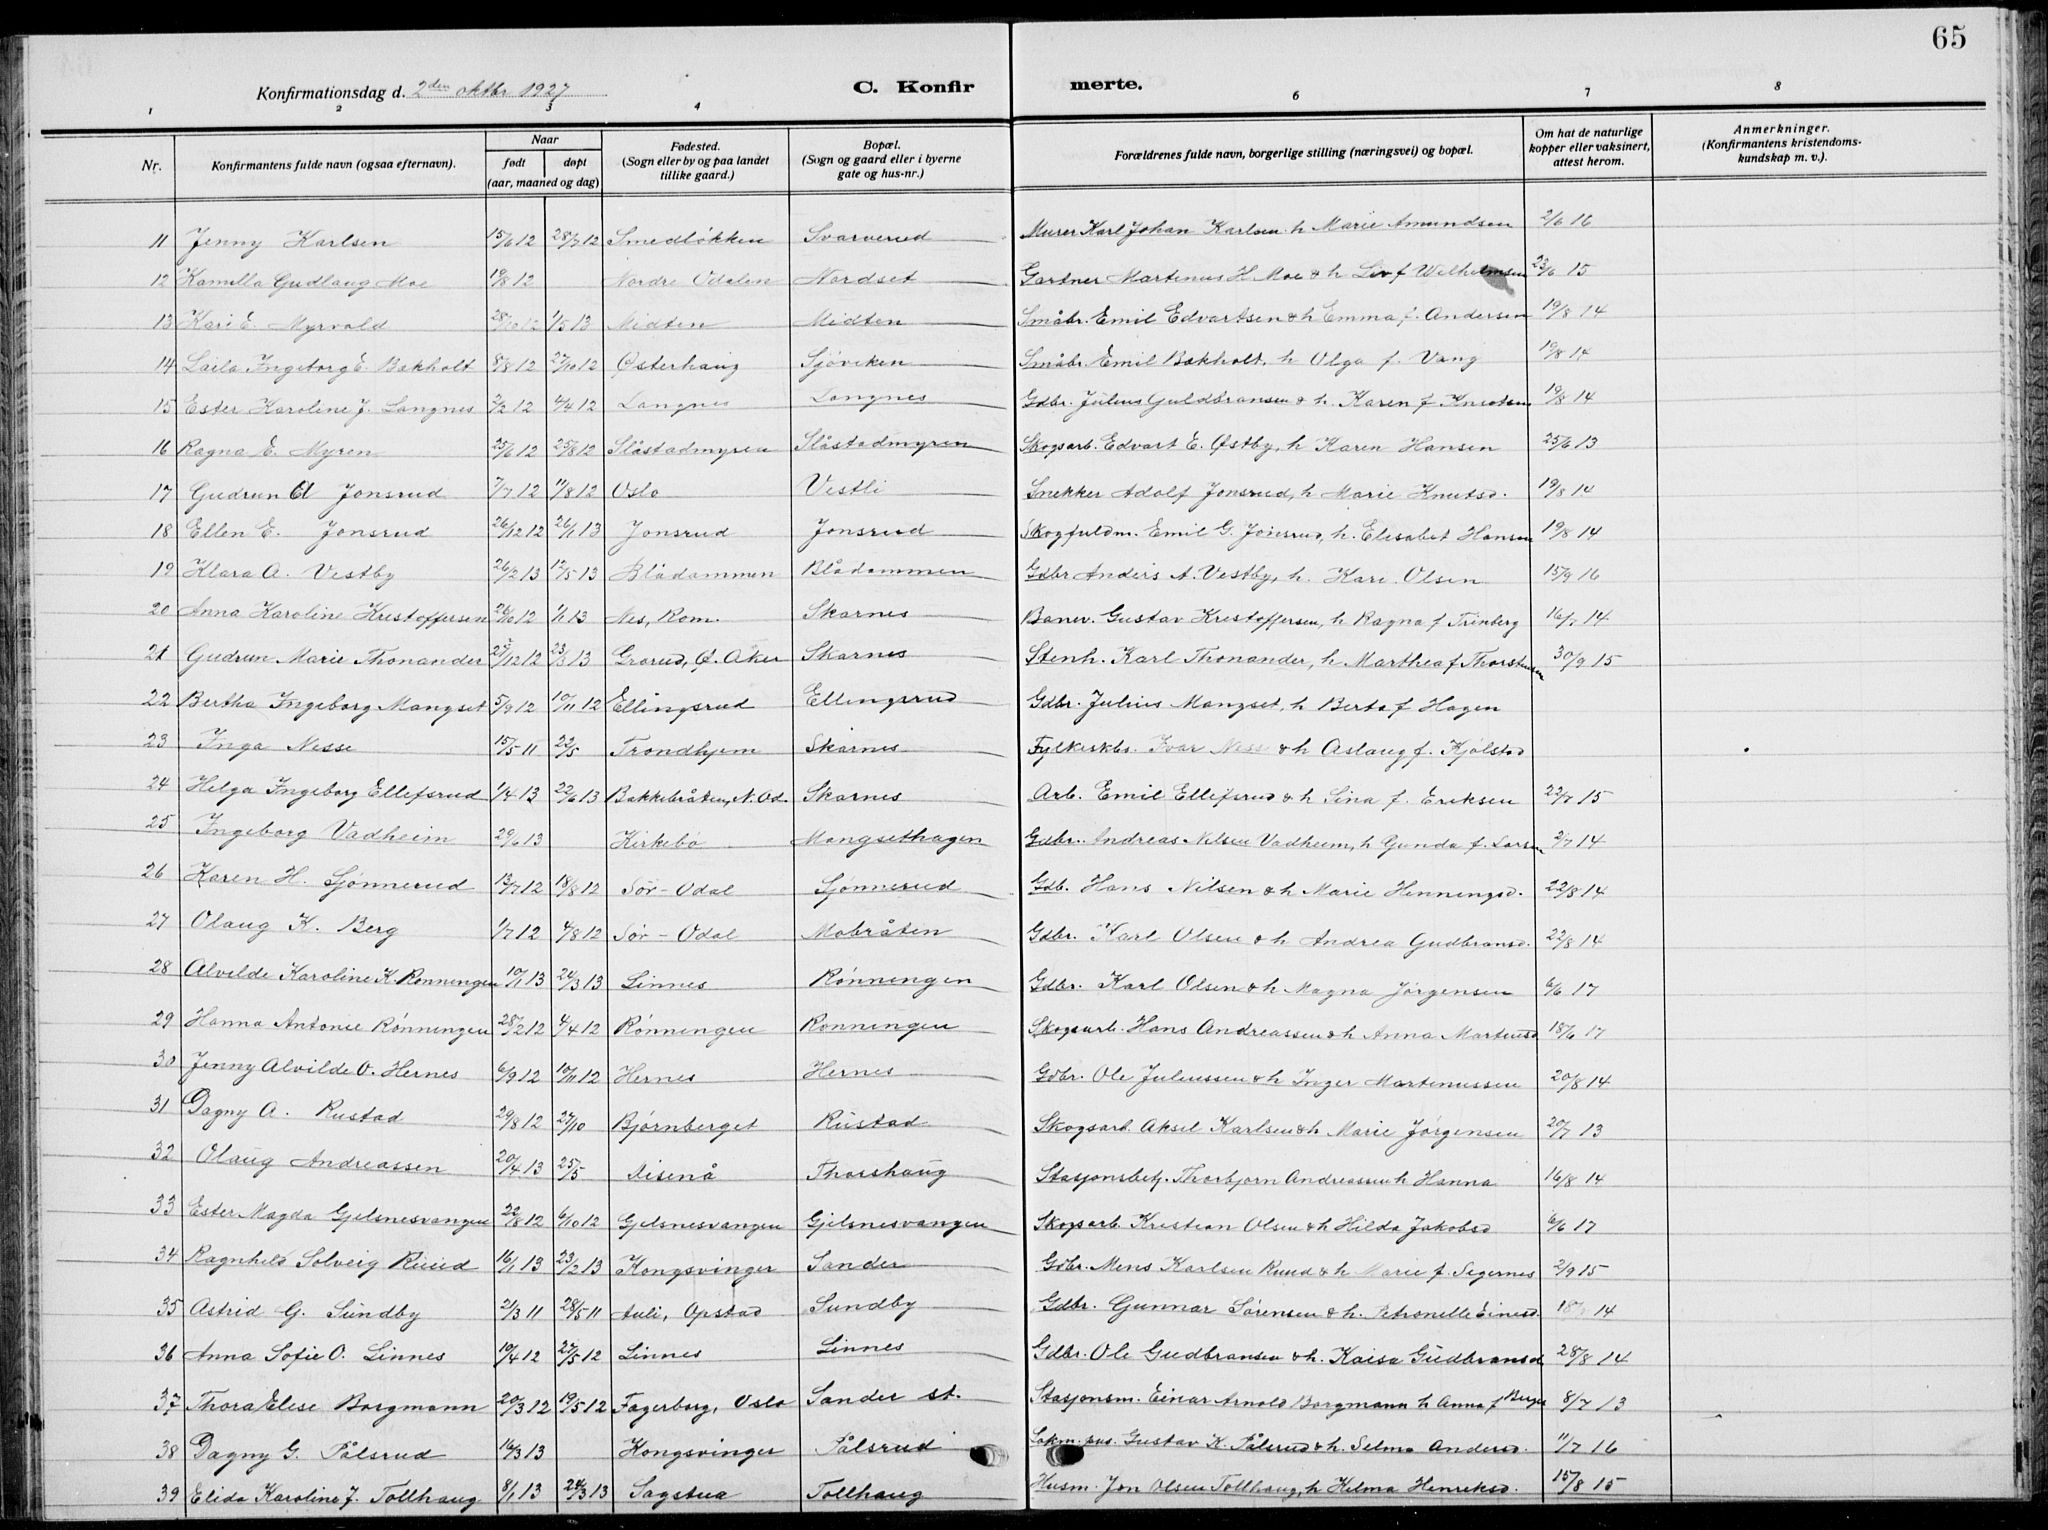 65
Konfirmationsdag d. 2den oktbr 1927 C. Konfirmerte.
1 2 3 4 6 7 8
Nr. Konfirmantens fulde navn (ogsaa efternavn). Naar født døpt (aar, maaned og dag) Fødested. (Sogn eller by og paa landet tillike gaard.) Bopæl. (Sogn og gaard eller i byerne gate og hus-nr.) Forældrenes fulde navn, borgerlige stilling (næringsvei) og bopæl. Om hat de naturlige kopper eller vaksinert, attest herom. Anmerkninger. (Konfirmantens kristendomskundskap m. v.).
11 Jenny Karlsen 15/6 12 28/7 12 Smedløkken Svarverud Murer Karl Johan Karlsen h Marie Amundsen 2/6 16
12 Kamilla Gudlaug Moe 19/8 12 Nordre Odalen Nordset Gartner Martinus H Moe & h Liv f Wilhelmsen 23/6 15
13 Kari E. Myrvold 28/10 12 1/5 13 Midten Midten Småbr. Emil Edvartsen & h Emma f. Andersen 19/8 14
14 Laila Ingeborg E. Bakholt 8/8 12 27/10 12 Østerhaug Sjøviken Småbr Emil Bakholt, h Olga f. Vang 19/8 14
15 Ester Karoline J. Langnes 2/2 12 4/4 12 Langnes Langnes Gdbr. Julius Guldbransen & h. Karen f Knutsen 19/8 14
16 Ragna E. Myren 25/6 12 25/8 12 Slåstadmyren Slåstadmyren Skogsarb. Edvart E. Østby, h Karen Hansen 25/6 13
17 Gudrun A Jonsrud 7/7 12 11/8 12 Oslo Vestli Snekker Adolf Jonsrud, h Marie Knutsd. 19/8 14
18 Ellen E. Jonsrud 26/12 12 26/1 13 Jonsrud Jonsrud Skogfuldm. Emil G. Jonsrud, h. Elisabet Hansen 19/8 14
19 Klara A. Vestby 26/2 13 12/5 13 Blådammen Blådammen Gdbr Anders A. Vestby, h. Kari Olsen 15/9 16
20 Anna Karoline Kristoffersen 26/10 12 1/1 13 Nes, Rom. Skarnes Banev. Gustav Kristoffersen, h Ragna f Trinberg 16/7 14
21 Gudrun Marie Thonander 27/12 12 23/3 13 Grorud, Ø. Aker Skarnes Stenh. Karl Thonander, h. Marthea f Thorstensen 30/9 15
22 Bertha Ingeborg Mangset 5/9 12 10/11 12 Ellingsrud Ellingsrud Gdbr. Julius Mangset, h Berta f Hagen
23 Inga Nesse 15/5 11 22/5 Trondhjem Skarnes Fylkeskbs. Ivar Ness & h Aslaug f. Kjølstad
24 Helga Ingeborg Ellefsrud 1/4 13 22/6 13 Bakkebråten, N. Od. Skarnes Arb. Emil Ellefsrud & h Sina f. Eriksen 22/7 15
25 Ingeborg Vadheim 29/6 13 Kirkebø Mangsethagen Gdbr. Andreas Nilsen Vadheim, h Gunda f. Larsen 2/7 14
26 Karen H. Sjønnerud 13/7 12 18/8 12 Sør-Odal Sjønnerud Gdb. Hans Nilsen & h Marie Henningsd. 22/8 14
27 Olaug K. Berg 1/7 12 4/8 12 Sør-Odal Mobråten Gdbr. Karl Olsen & h Andrea Gudbransd. 22/8 14
28 Alvilde Karoline K. Rønningen 10/1 13 24/3 13 Linnes Rønningen Gdbr. Karl Olsen & h Magna Jørgensen 6/6 17
29 Hanna Antonie Rønningen 28/2 12 4/4 12 Rønningen Rønningen Skogsarb. Hans Andreassen & h Anna Martinsd 18/6 17
30 Jenny Alvilde O. Hernes 6/9 12 10/11 12 Hernes Hernes Gdbr. Ole Juliussen & h Inger Martinussen 20/8 14
31 Dagny A. Rustad 29/8 12 27/10 Bjørnberget Rustad Skogsarb. Aksel Karlsen & h Marie Jørgensen 20/7 13
32 Olaug Andreassen 20/4 13 25/5 Disenå Thorshaug Stasjonsbetj. Thorbjørn Andreassen h Hanna 16/8 14
33 Ester Magda Gjelsnesvangen 22/8 12 6/10 12 Gjelsnesvangen Gjelsnesvangen Skogsarb Kristian Olsen & h Hilda Jakobsd 6/6 17
34 Ragnhild Solveig Ruud 16/1 13 23/2 13 Kongsvinger Sander Gdbr. Mens Karlsen Ruud & h Marie f. Segernes 2/9 15
35 Astrid G. Sundby 2/3 11 28/5 11 Auli, Opstad Sundby Gdbr. Gunnar Sørensen & h. Petronelle Einersd. 14
36 Anna Sofie O. Linnes 10/4 12 27/5 12 Linnes Linnes Gdbr. Ole Gudbransen & h. Kaisa Gudbransd 28/8 14
37 Thora Elise Borgmann 20/3 12 19/5 12 Fagerborg, Oslo Sander st. Stasjonsm. Einar Arnold Borgmann h Anna f Berger 8/7 13
38 Dagny G. Pålsrud 16/3 13 Kongsvinger Pålsrud Lokm.pus. Gustav K. Pålsrud & h. Selma Andersd. 11/7 16
39 Elida Karoline J. Tollhaug 8/1 13 24/3 13 Sagstua Tollhaug Husm. Jon Olsen Tollhaug, h Hilma Henriksd. 15/8 15